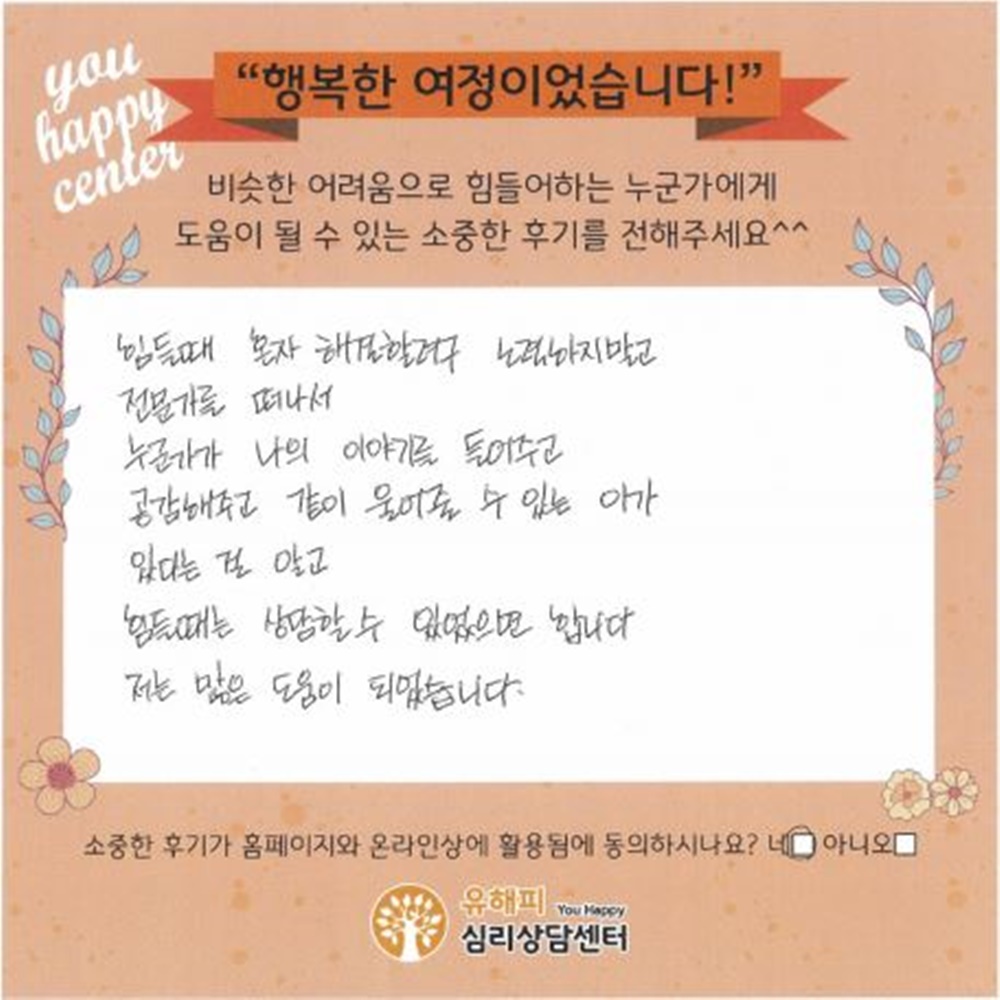 you
happy
center
“행복한 여정이었습니다!”
비슷한 어려움으로 힘들어하는 누군가에게
도움이 될 수 있는 소중한 후기를 전해주세요^^
힘들때 혼자 해결할려구 노력하지말고
전문가를 떠나서
누군가가 나의 이야기를 들어주고
공감해주고 같이 울어줄 수 있는 이가
있다는 걸 알고
힘들때는 상담할 수 있었으면 합니다
저는 많은 도움이 되었습니다.
소중한 후기가 홈페이지와 온라인상에 활용됨에 동의하시나요? 네 아니오
유해피 You Happy
심리상담센터